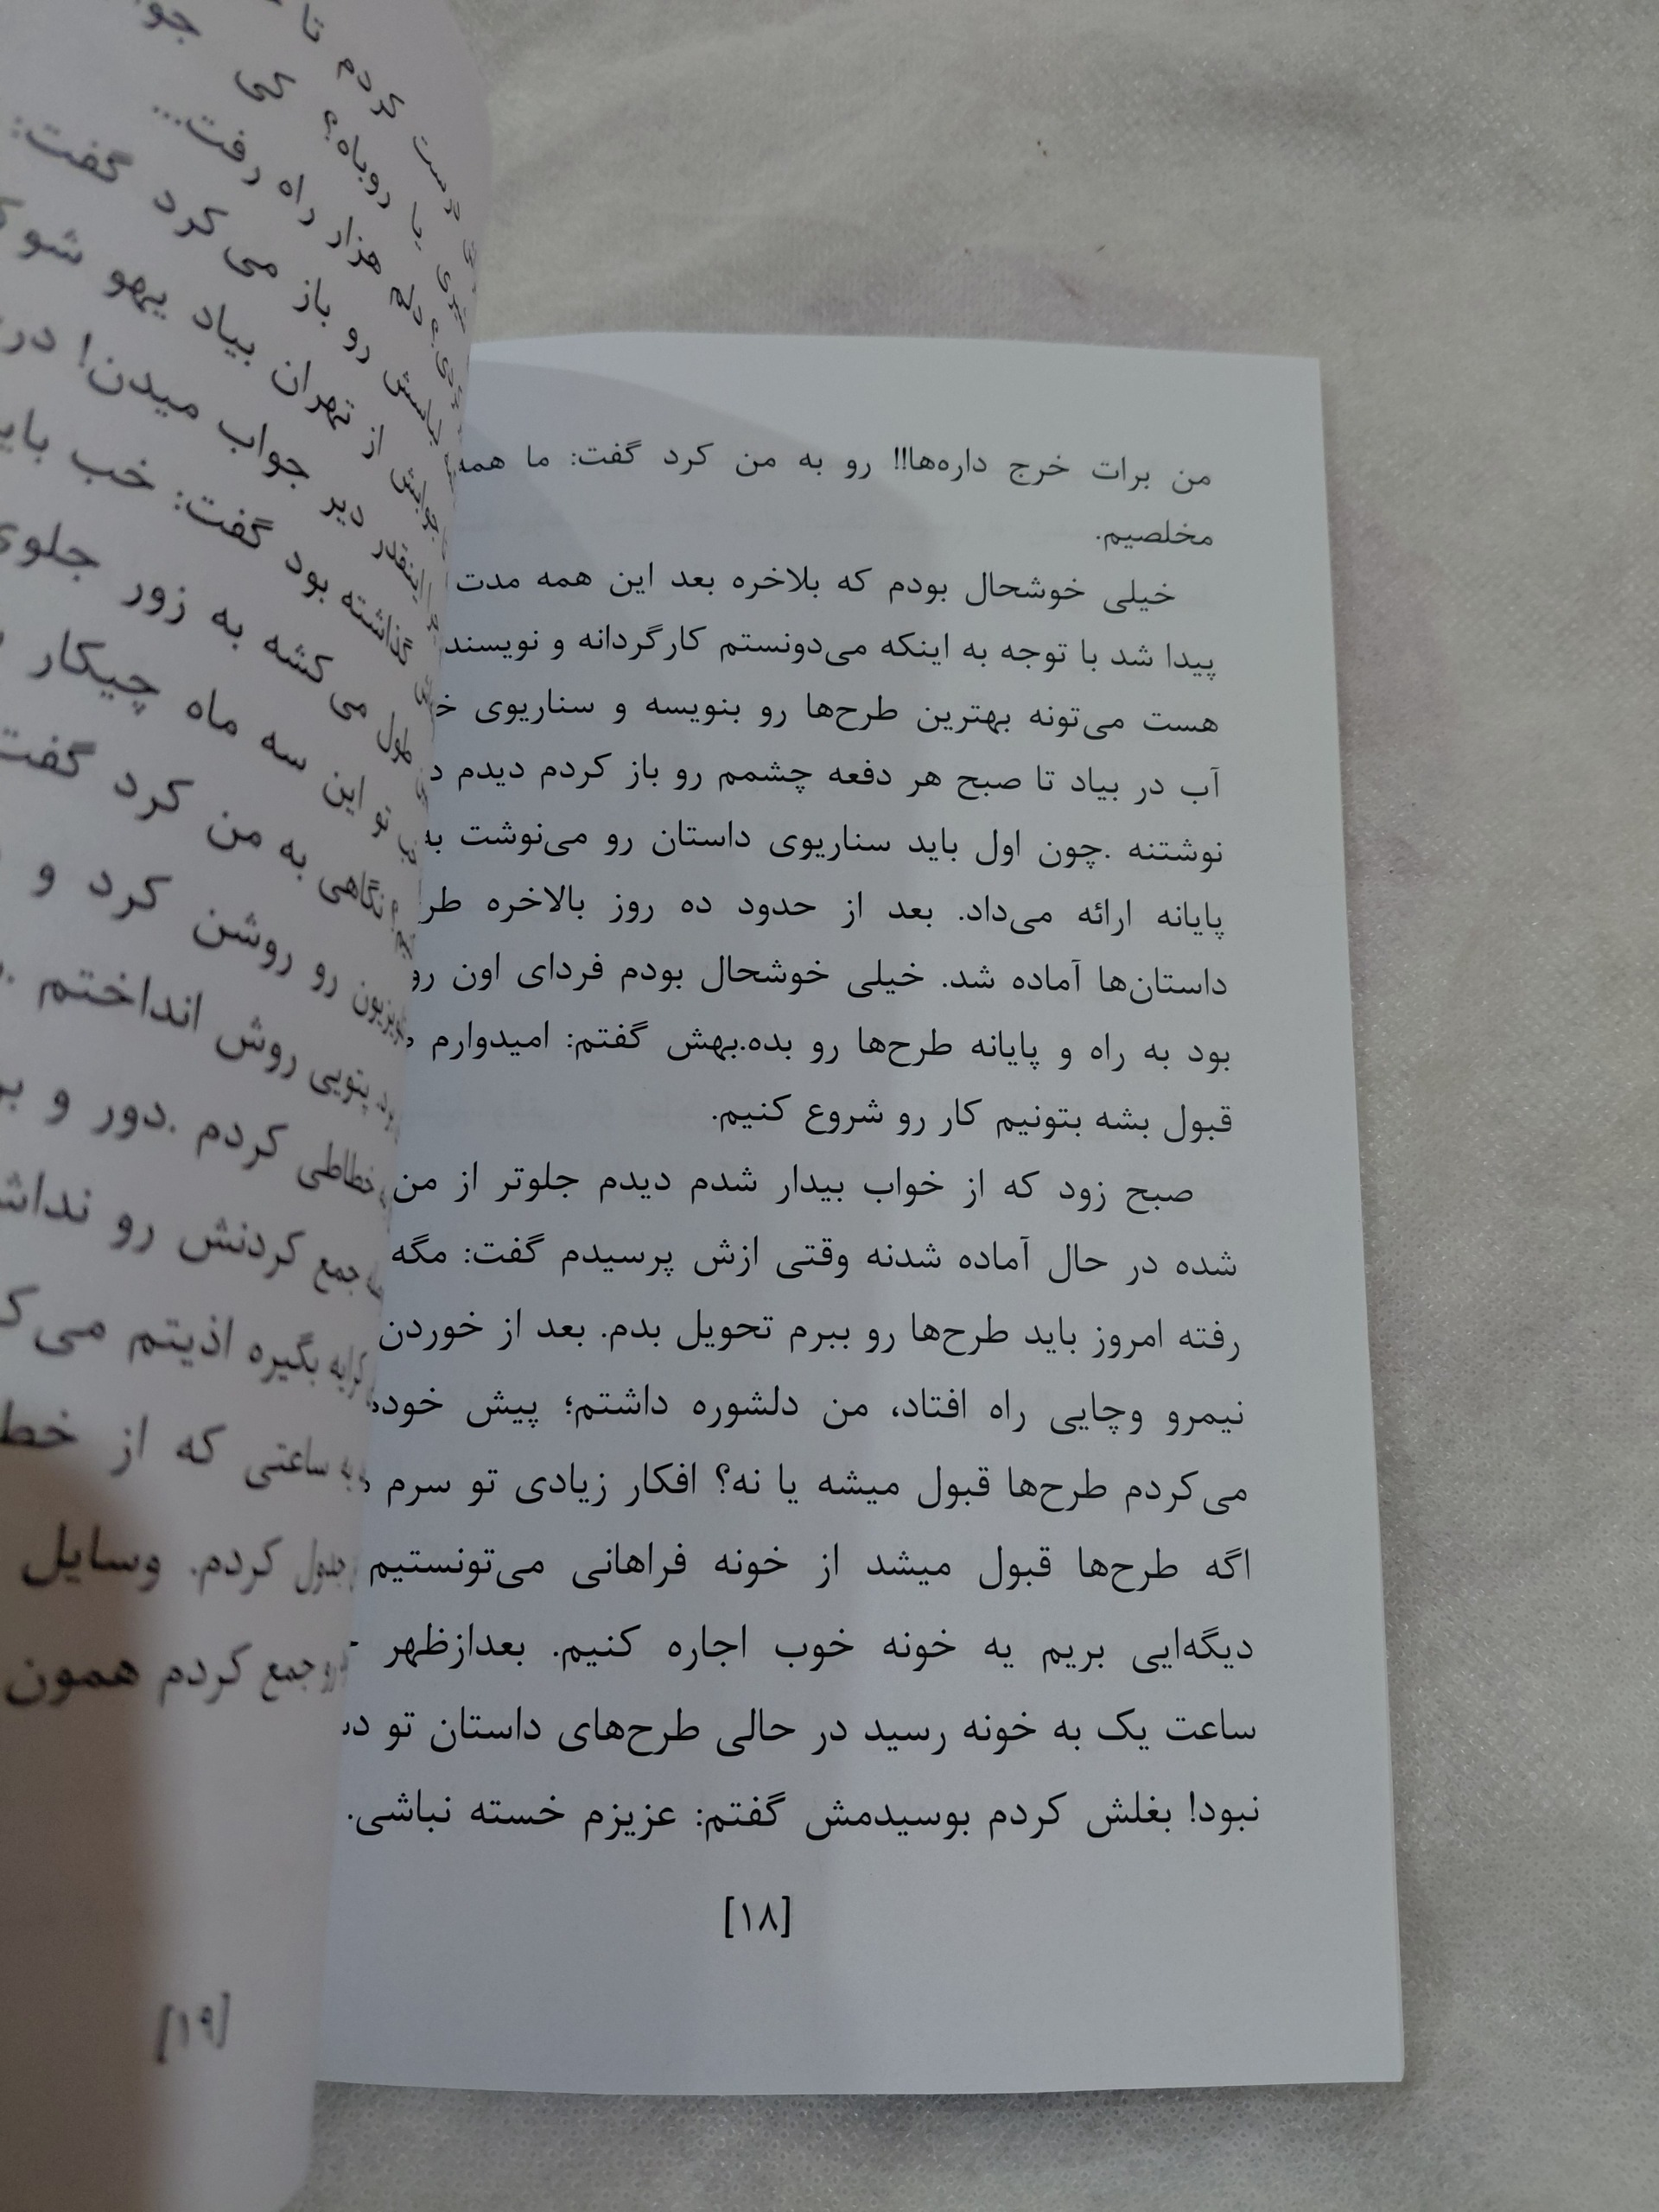 من برات خرج داره‌ها!! رو به من کرد گفت: ما همه
مخلصیم.
خیلی خوشحال بودم که بلاخره بعد این همه مدت
پیدا شد با توجه به اینکه می‌دونستم کارگردانه و
هست می‌تونه بهترین طرح‌ها رو بنویسه و سناریوی
آب در بیاد تا صبح هر دفعه چشمم رو باز کردم دیدم
نوشتنه .چون اول باید سناریوی داستان رو می‌نوشت
پایانه ارائه می‌داد. بعد از حدود ده روز بالاخره
داستان‌ها آماده شد. خیلی خوشحال بودم فردای اون
بود به راه و پایانه طرح‌ها رو بده.بهش گفتم: امیدوارم
قبول بشه بتونیم کار رو شروع کنیم.
صبح زود که از خواب بیدار شدم دیدم جلوتر از من
شده در حال آماده شدنه وقتی ازش پرسیدم گفت: مگه
رفته امروز باید طرح‌ها رو ببرم تحویل بدم. بعد از خوردن
نیمرو وچایی راه افتاد، من دلشوره داشتم؛ پیش
می‌کردم طرح‌ها قبول میشه یا نه؟ افکار زیادی تو سرم
اگه طرح‌ها قبول میشد از خونه فراهانی می‌تونستیم
دیگه‌ایی بریم یه خونه خوب اجاره کنیم. بعدازظهر
ساعت یک به خونه رسید در حالی طرح‌های داستان تو
نبود! بغلش کردم بوسیدمش گفتم: عزیزم خسته نباشی.
[۱۸]
کردم تا
روباه؟ کی
هزار راه رفت...
رو باز می‌کرد گفت:
از تهران بیاد یهو
اینقدر دیر جواب میدن!
گذاشته بود گفت: خب
طول می‌کشه به زور جلوی
تو این سه ماه چیکار
نگاهی به من کرد
رو روشن کرد و
پتویی روش انداختم .
خطاطی کردم .دور و
جمع کردنش رو
کرایه بگیره اذیتم
ساعتی که از
کردم. وسایل
جمع کردم همون
[۱۹]